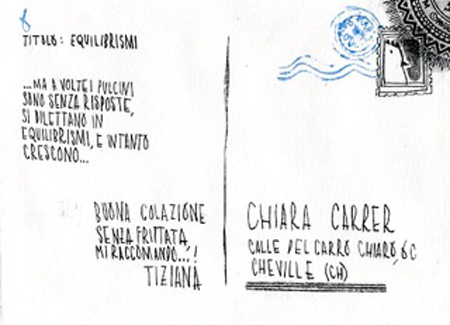 TITOLO: EQUILIBRISMI
...MA A VOLTE I PULCINI
SONO SENZA RISPOSTE,
SI DILETTANO IN
EQUILIBRISMI, E INTANTO
CRESCONO...
BUONA COLAZIONE
SENZA FRITTATA,
MI RACCOMANDO...!
TIZIANA
CHIARA CARRER
CALLE DEL CARRO CHIARO, 6C
CHEVILLE (CH)